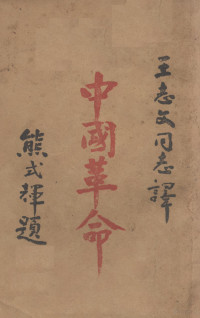 王志文同志譯
中國革命
熊式輝題